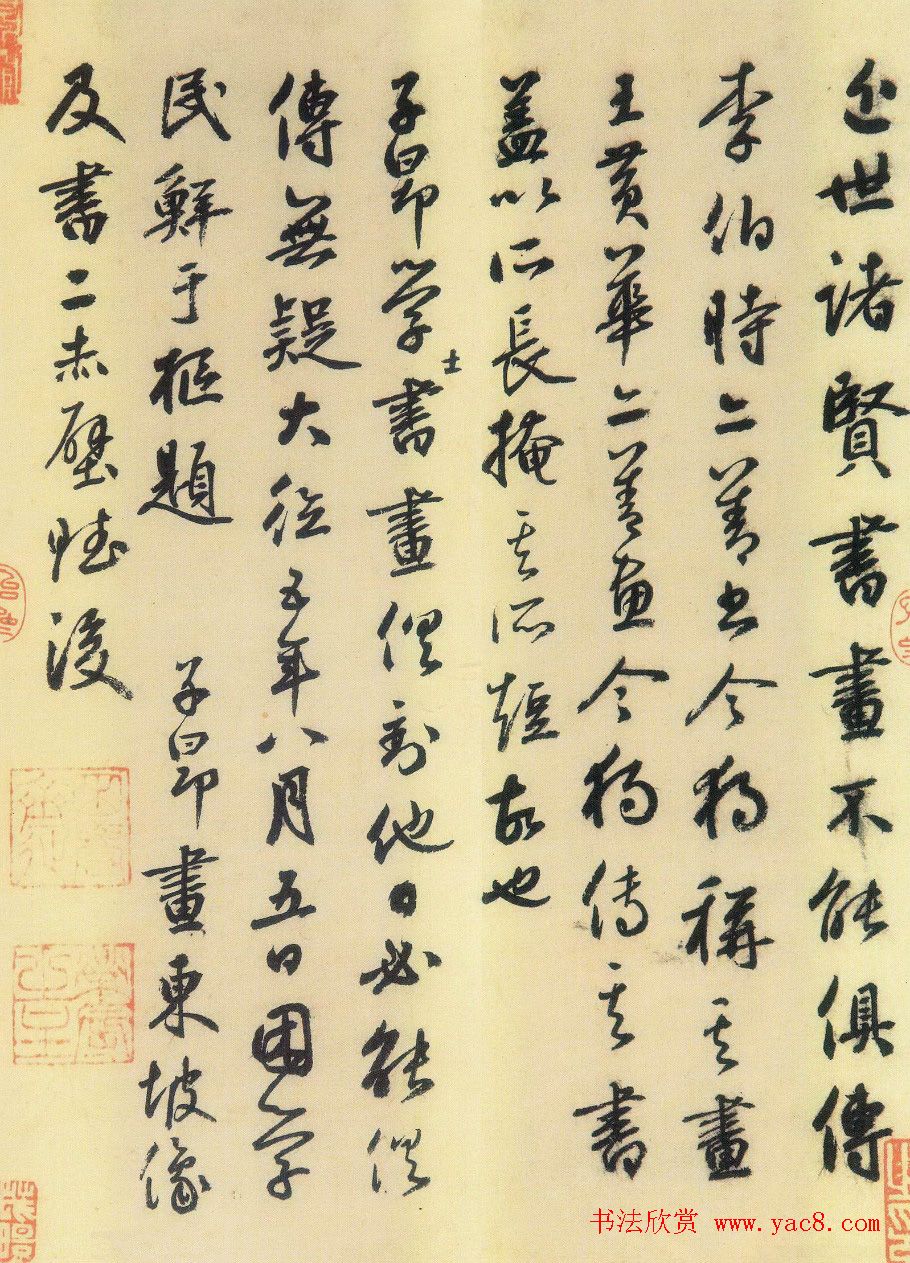 近世諸賢書畫不能俱傳
李伯時亦善書今獨稱其畫
王黃華亦善畫今獨傳其書
蓋以所長掩其所短故也
子昂學士書畫俱到他日必能俱
傳無疑大德五年八月五日困學
民鮮于樞題 子昂畫東坡像
及書二赤壁賦後
书法欣赏 www.yac8.com